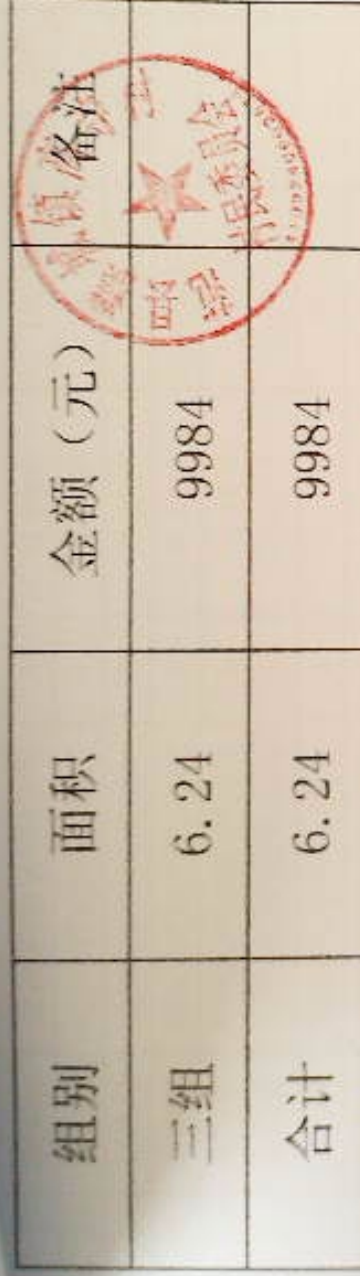 组别 面积 金额（元） 备注
三组 6.24 9984
合计 6.24 9984
村民委员会